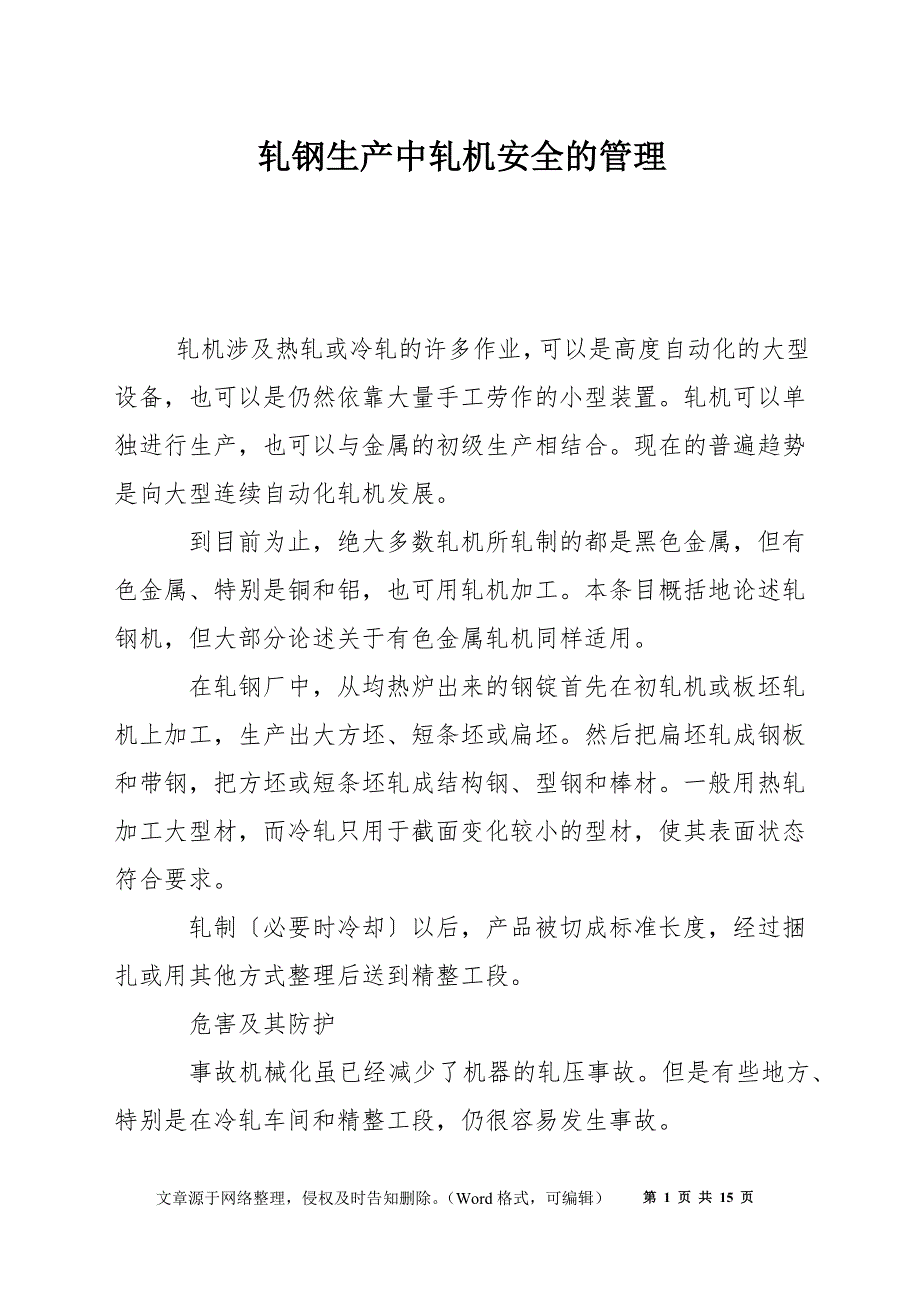 轧钢生产中轧机安全的管理
轧机涉及热轧或冷轧的许多作业，可以是高度自动化的大型
设备，也可以是仍然依靠大量手工劳作的小型装置。轧机可以单
独进行生产，也可以与金属的初级生产相结合。现在的普遍趋势
是向大型连续自动化轧机发展。
到目前为止，绝大多数轧机所轧制的都是黑色金属，但有
色金属、特别是铜和铝，也可用轧机加工。本条目概括地论述轧
钢机，但大部分论述关于有色金属轧机同样适用。
在轧钢厂中，从均热炉出来的钢锭首先在初轧机或板坯轧
机上加工，生产出大方坯、短条坯或扁坯。然后把扁坯轧成钢板
和带钢，把方坯或短条坯轧成结构钢、型钢和棒材。一般用热轧
加工大型材，而冷轧只用于截面变化较小的型材，使其表面状态
符合要求。
轧制〔必要时冷却〕以后，产品被切成标准长度，经过捆
扎或用其他方式整理后送到精整工段。
危害及其防护
事故机械化虽已经减少了机器的轧压事故。但是有些地方、
特别是在冷轧车间和精整工段，仍很容易发生事故。
文章源于网络整理，侵权及时告知删除。（Word 格式，可编辑） 第 1 页 共 15 页